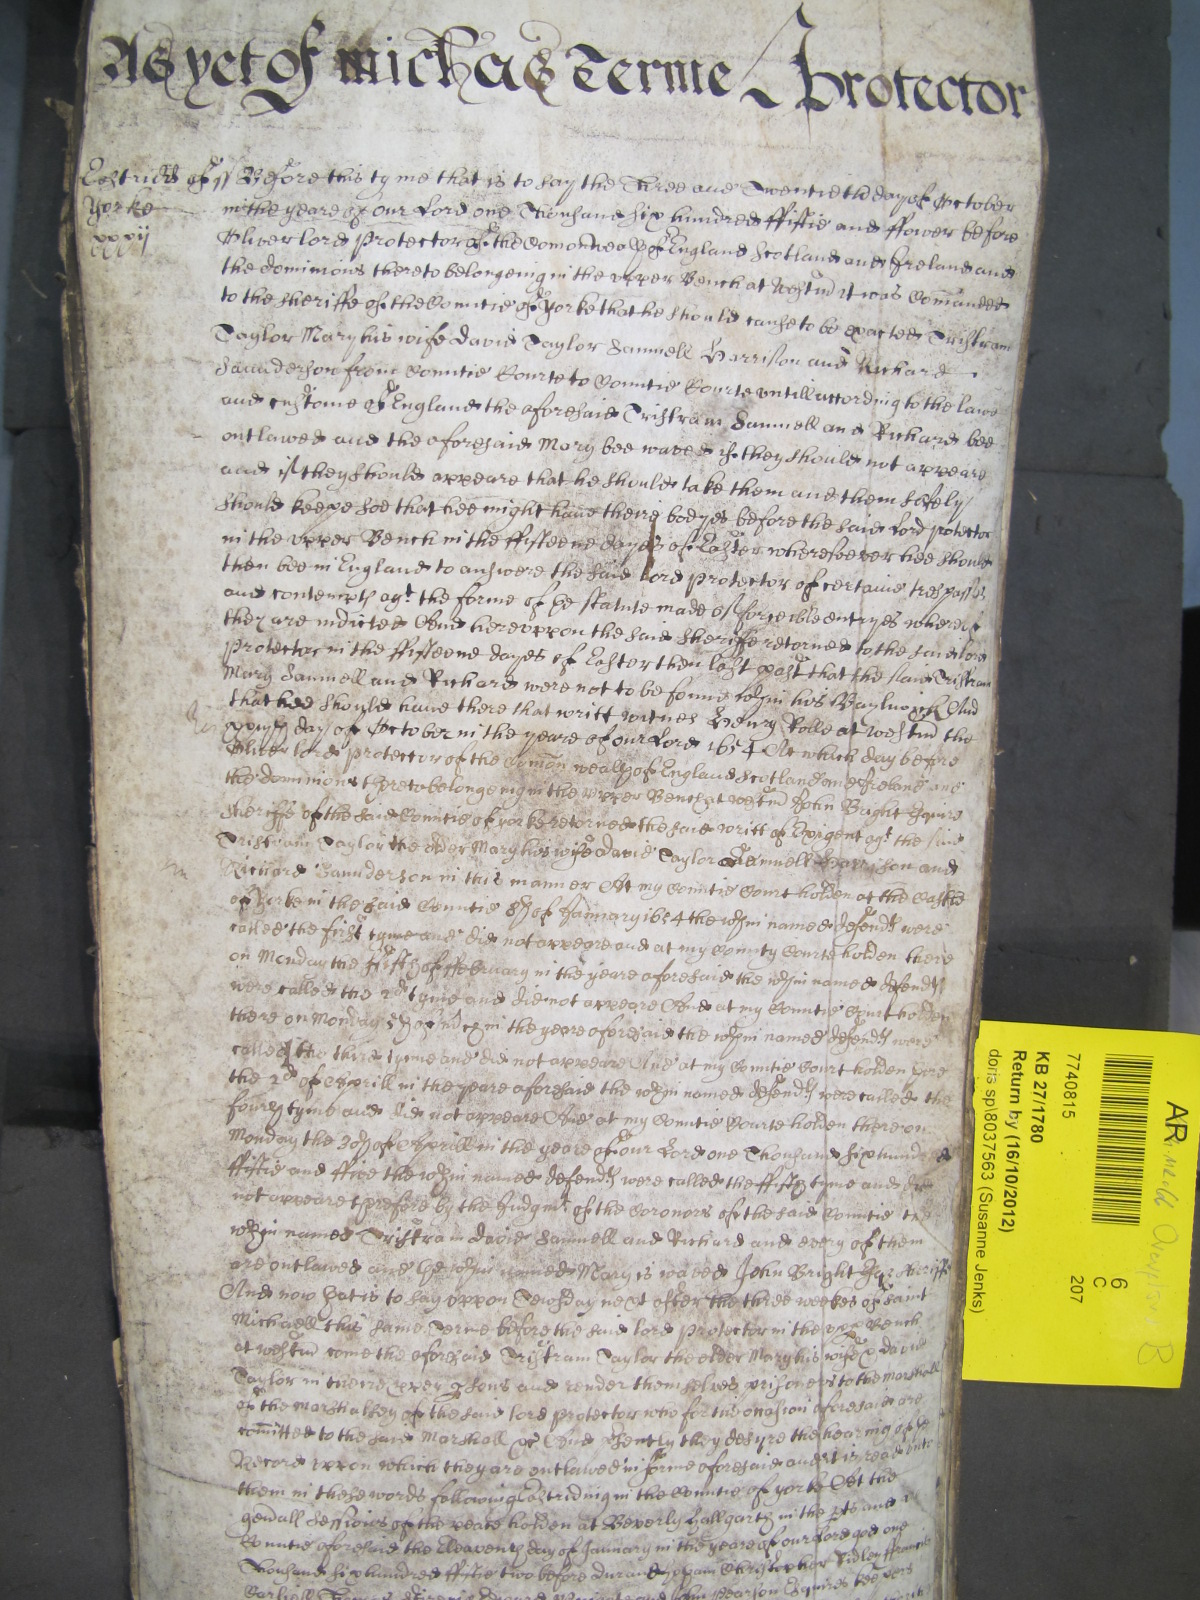 As yet of Michas Terme Protector
Eastridd of ss Before this tyme that is to say the Three and Twentieth day of October
Yorke in the yeare of our Lord one Thousand six hundred ffiftie and ffower before
xxvij Oliver lord Protector of the Comonwealth of England Scotland and Ireland and
the dominions thereto belongeing in the upper Bench at Westm it was Comanded
to the Sheriffe of the Countie of Yorke that he should cause to be exacted Tristram
Taylor Mary his wife David Taylor Samuell Harrison and Richard
Saunderson from Countie Courte to Countie Courte untill according to the lawe
and custome of England the aforesaid Tristram Samuell and Richard bee
outlawed and the aforesaid Mary bee waved if they should not appeare
and if they should appeare that he should take them and them safely
should keepe soe that hee might have theire bodyes before the said Lord protector
in the upper Bench in the ffifteene dayes of Easter wheresoever hee should
then bee in England to answere the said lord Protector of certaine trespasses
and contempts agt the forme of the statute made of forceible entryes whereof
they are indicted And hereuppon the said Sheriffe retorned to the said lord
Protector in the ffifteene dayes of Easter then last past that the said Tristram
Mary Samuell and Richard were not to be found within his Baylywick And
that hee should have there that writt witnes Henry Rolle at Westm the
day of October in the yeare of our Lord 1654 At which day before
Oliver lord Protector of the Comon wealth of England Scotland and Ireland and
the dominions thereto belongeing in the upper Bench at Westm John Bright Esquire
Sheriffe of the said Countie of yorke retorned the said writt of Exigent agt the said
Tristram Taylor the elder Mary his wife David Taylor Samuell Harrison and
Richard Saunderson in this manner At my Countie Court holden at the Castle
of Yorke in the said Countie 8th of January 1654 the within named defendts were
called the first tyme and did not appeare and at my County Courte holden there
on Monday the ffifth of ffebruary in the yeare aforesaid the within named defendts
were called the 2d tyme and did not appeare And at my Countie Court holden
there on Monday 5th of in the yeare aforesaid the within named defendts were
called the third tyme and did not appeare And at my Countie Court holden there
the 2d of Aprill in the yeare aforesaid the within named defendts were called the
fourth tyme and did not appeare And at my Countie Courte holden there on
Monday the 30th of Aprill in the yeare of our Lord one Thousand six hundred
ffiftie and ffive the within named defendts were called the ffifth tyme and did
not appeare therefore by the Judgmt of the Coronors of the said Countie the
within named Tristram David Samuell and Richard and every of them
are outlawed and the within named Mary is waved John Bright Esqr Sheriffe
And now that is to say uppon Tewsday next after the three weekes of saint
Michaell this same Terme before the said lord Protector in the upper Bench
at westm come the aforesaid Tristram Taylor the elder Mary his wife & David
Taylor in theire proper psons and render themselves prisoners to the Marshall
of the Marshalsey of the said lord Protector who for this occasion aforesaid are
comitted to the said Marshall &c And p'sently they desyre the heareing of the
Record uppon which they are outlawed in forme aforesaid and it is read unto
them in these words following Eastriding in the Countie of yorke At the
gen'all Sessions of the peace holden at Beverly hallgarth in the pts and
Countie aforesaid the Eleaventh day of January in the yeare of our Lord god one
Thousand six hundred ffiftie two before Christopher Ridley ffrancis
Pearson Esquires keepers
AR
6
C
207
7740815
KB 27/1780
Return by (16/10/2012)
doris sp\8037563 (Susanne Jenks)